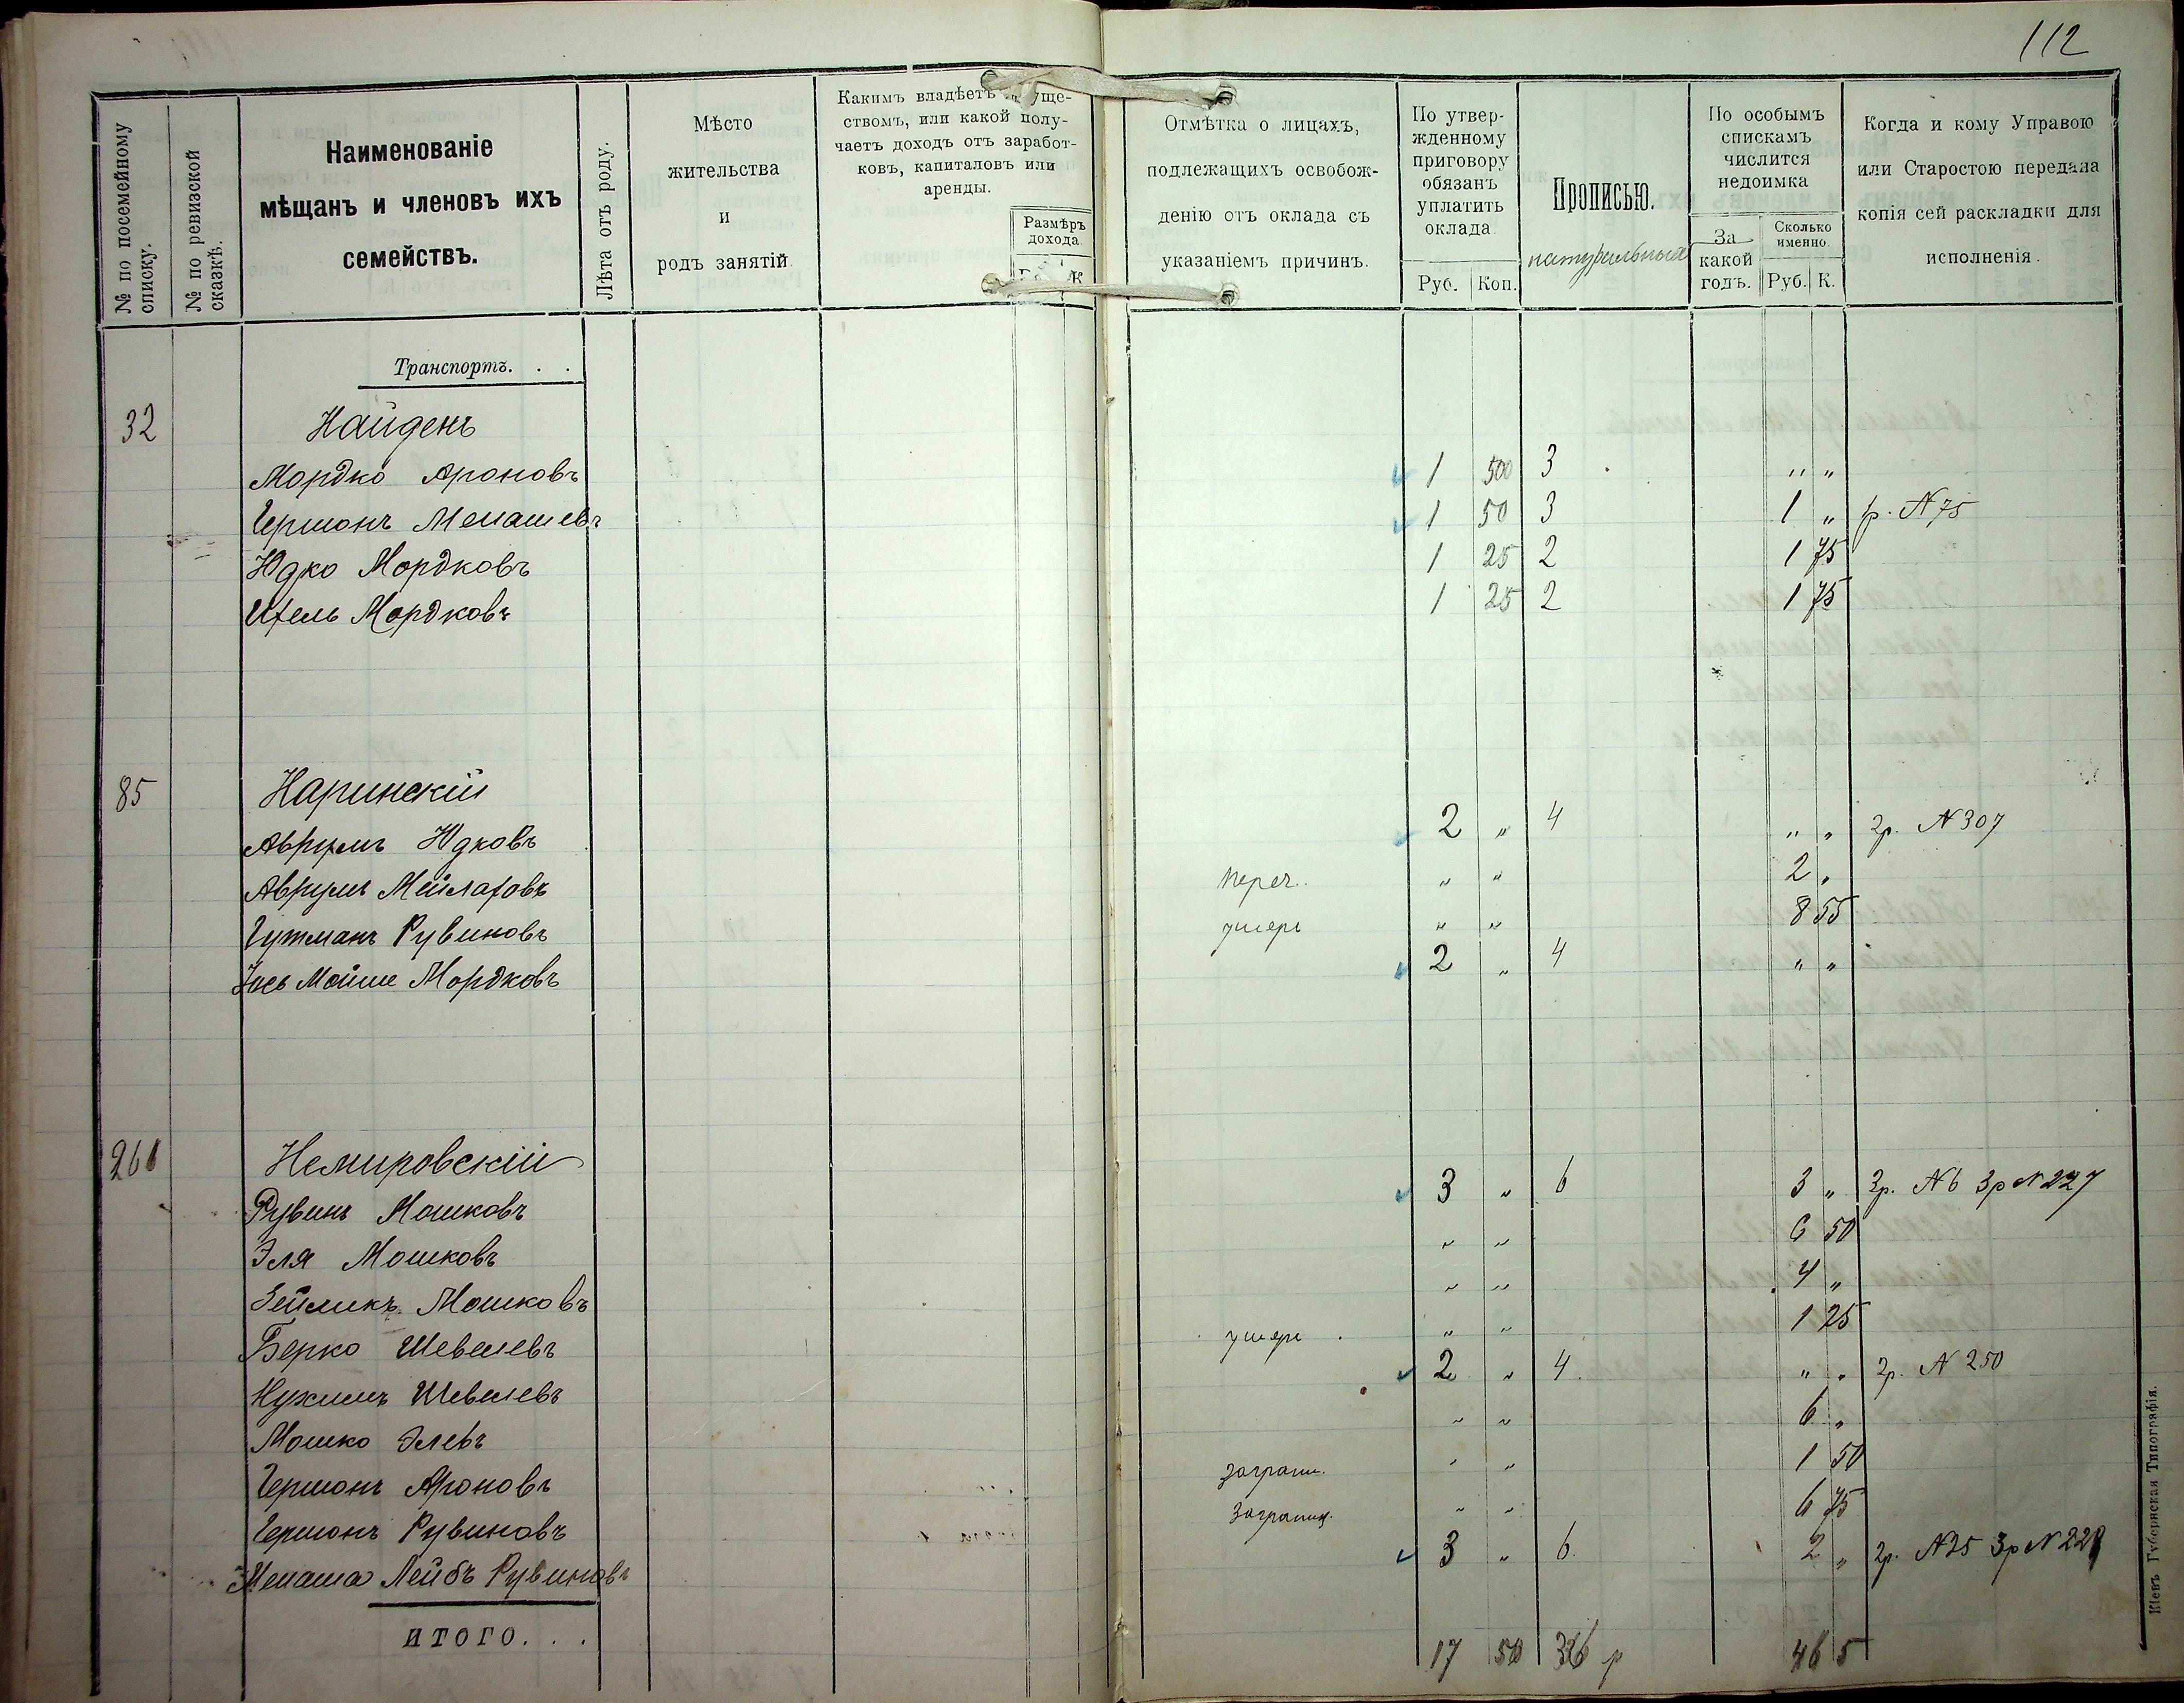 112
№ по посемейному списку.
№ по ревизской сказкѣ.
Наименованіе
мѣщанъ и членовъ ихъ
семействъ.
Лѣта отъ роду.
Мѣсто
жительства
и
родъ занятій
Какимъ владѣетъ уще-
ствомъ, или какой полу-
чаетъ доходъ отъ заработ-
ковъ, капиталовъ или
аренды.
Размѣръ
дохода
К
Отмѣтка о лицахъ,
подлежащихъ освобож-
денію отъ оклада съ
указаніемъ причинъ.
По утвер-
жденному
приговору
обязанъ
уплатить
оклада
Руб. Коп.
Прописью.
натуральный
По особымъ
спискамъ
числится
недоимка
За
какой
годъ.
Сколько
именно.
Руб. К.
Когда и кому Управою
или Старостою передана
копія сей раскладки для
исполненія.
Транспортъ. . .
32 Найденъ
Мордко Ароновъ 1 50 3 " "
Гершонъ Менашевъ 1 50 3 1 " р. N 75
Юдко Мордковъ 1 25 2 1 75
Ицель Мордковъ 1 25 2 1 75
85 Наринскій
Аврумъ Юдковъ 2 " 4 " " 2р. N 307
Аврумъ Мейлаховъ переч. " " 2 "
Гутманъ Рувиновъ умеръ " " 8 55
Іось Мойше Мордковъ 2 " 4 " "
261 Немировскій
Рувинъ Мошковъ 3 " 6 3 " 3р. N 6 3р N 227
Эля Мошковъ " " 6 50
Зейликъ Мошковъ " " 4 "
Берко Шевелевъ умеръ " " 1 25
Нухимъ Шевелевъ 2 " 4 " " 2р. N 250
Мошко Элевъ " " 6 "
Гершонъ Ароновъ заграни. " " 1 50
Гершонъ Рувиновъ Заграниц. " " 6 75
Менаша Лейбъ Рувиновъ 3 " 6 2 " 2р. N 25 3р N 228
ИТОГО. . . 17 50 36 р 46 5
Кіевъ Губернская Типографія.